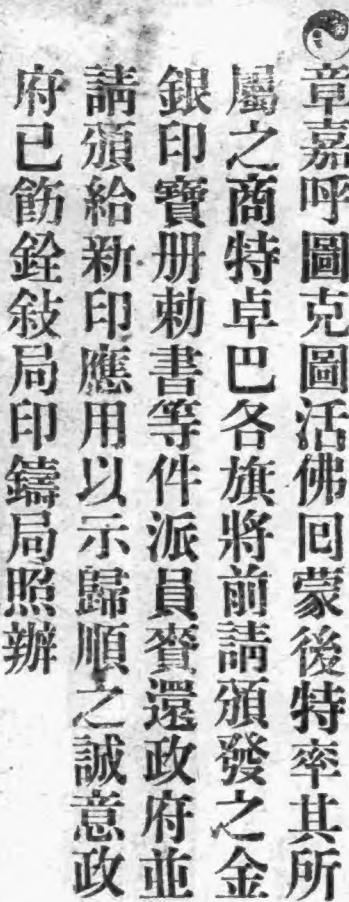 章嘉呼圖克圖活佛回蒙後特率其所
屬之商特卓巴各旗將前請頒發之金
銀印寶册勅書等件派員賫還政府並
請頒給新印應用以示歸順之誠意政
府已飭銓敍局印鑄局照辦